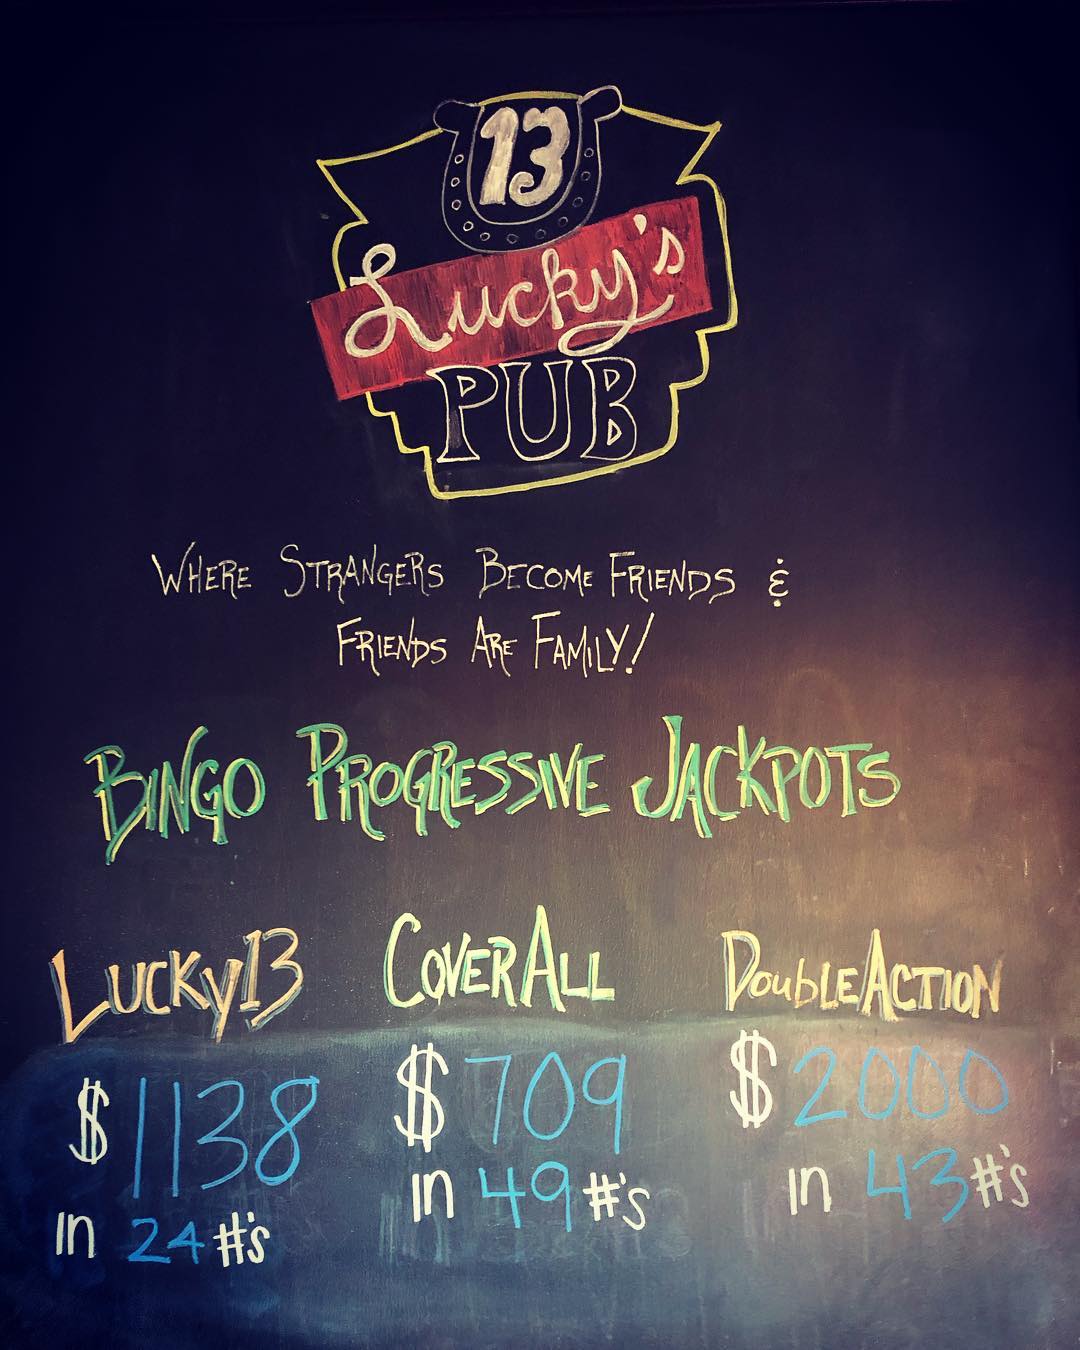 13
Lucky's
PUB
WHERE STRANGERS BECOME FRIENDS &
FRIENDS ARE FAMILY!
BINGO PROGRESSIVE JACKPOTS
LUCKY13 COVERALL DOUBLEACTION
$1138 $709 $2000
in 24 #'s in 49 #'s in 43 #'s